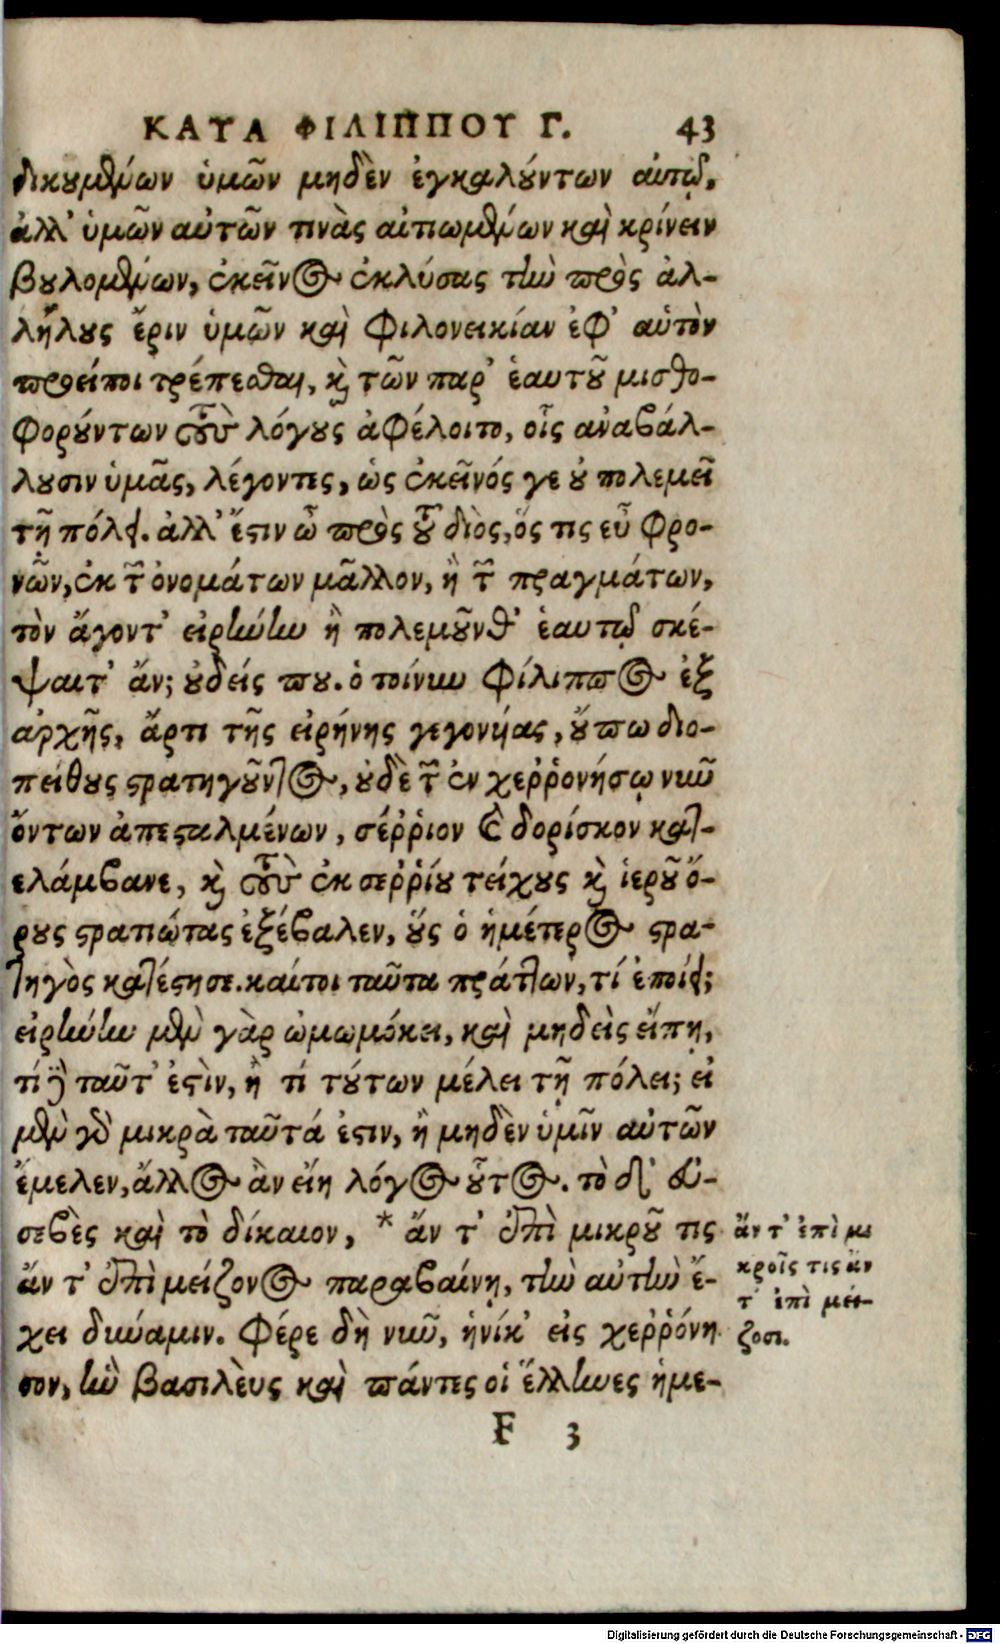 ΚΑΤΑ ΦΙΛΙΠΠΟΥ Γ. 43
δικουμένων ὑμῶν μηδὲν ἐγκαλούντων αὐτῷ,
ἀλλ' ὑμῶν αὐτῶν τινὰς αἰτιωμένων καὶ κρίνειν
βουλομένων, ἐκεῖνος ἐκλύσας τὴν πρὸς ἀλ-
λήλους ἔριν ὑμῶν καὶ φιλονεικίαν ἐφ' αὑτὸν
προείποι τρέπεσθαι, καὶ τῶν παρ' ἑαυτοῦ μισθο-
φορούντων τοὺς λόγους ἀφέλοιτο, οἷς ἀναβάλ-
λουσιν ὑμᾶς, λέγοντες, ὡς ἐκεῖνός γε οὐ πολεμεῖ
τῇ πόλει. ἀλλ' ἔστιν ὦ πρὸς τοῦ διὸς, ὅς τις εὖ φρο-
νῶν, ἐκ τῶν ὀνομάτων μᾶλλον, ἢ τῶν πραγμάτων,
τὸν ἄγοντ' εἰρήνην ἢ πολεμοῦνθ' ἑαυτῷ σκέ-
ψαιτ' ἄν; οὐδείς που. ὁ τοίνυν Φίλιππος ἐξ
ἀρχῆς, ἄρτι τῆς εἰρήνης γεγονυίας, οὔπω διο-
πείθους στρατηγοῦντος, οὐδὲ τῶν ἐν χεῤῥονήσῳ νῦν
ὄντων ἀπεσταλμένων, σέῤῥιον καὶ δορίσκον κατ-
ελάμβανε, καὶ τοὺς ἐκ σεῤῥίου τείχους καὶ ἱεροῦ ὄ-
ρους στρατιώτας ἐξέβαλεν, οὓς ὁ ἡμέτερος στρα-
τηγὸς κατέστησε. καίτοι ταῦτα πράττων, τί ἐποίει;
εἰρήνην μὲν γὰρ ὠμωμόκει, καὶ μηδεὶς εἴπῃ,
τί δὲ ταῦτ' ἐστὶν, ἢ τί τούτων μέλει τῇ πόλει; εἰ
μὲν γὰρ μικρὰ ταῦτά ἐστιν, ἢ μηδὲν ὑμῖν αὐτῶν
ἔμελεν, ἄλλος ἂν εἴη λόγος οὗτος. τὸ δ' εὐ-
σεβὲς καὶ τὸ δίκαιον, * ἄν τ' ἐπὶ μικροῦ τις
ἄν τ' ἐπὶ μείζονος παραβαίνῃ, τὴν αὐτὴν ἔ-
χει δύναμιν. Φέρε δὴ νῦν, ἡνίκ' εἰς χεῤῥόνη
σον, ἣν βασιλεὺς καὶ πάντες οἱ ἕλληνες ἡμε-
F 3
ἄν τ' ἐπὶ μι
κροῖς τις ἄν
τ' ἐπὶ μεί-
ζοσι.
Digitalisierung gefördert durch die Deutsche Forschungsgemeinschaft - DFG